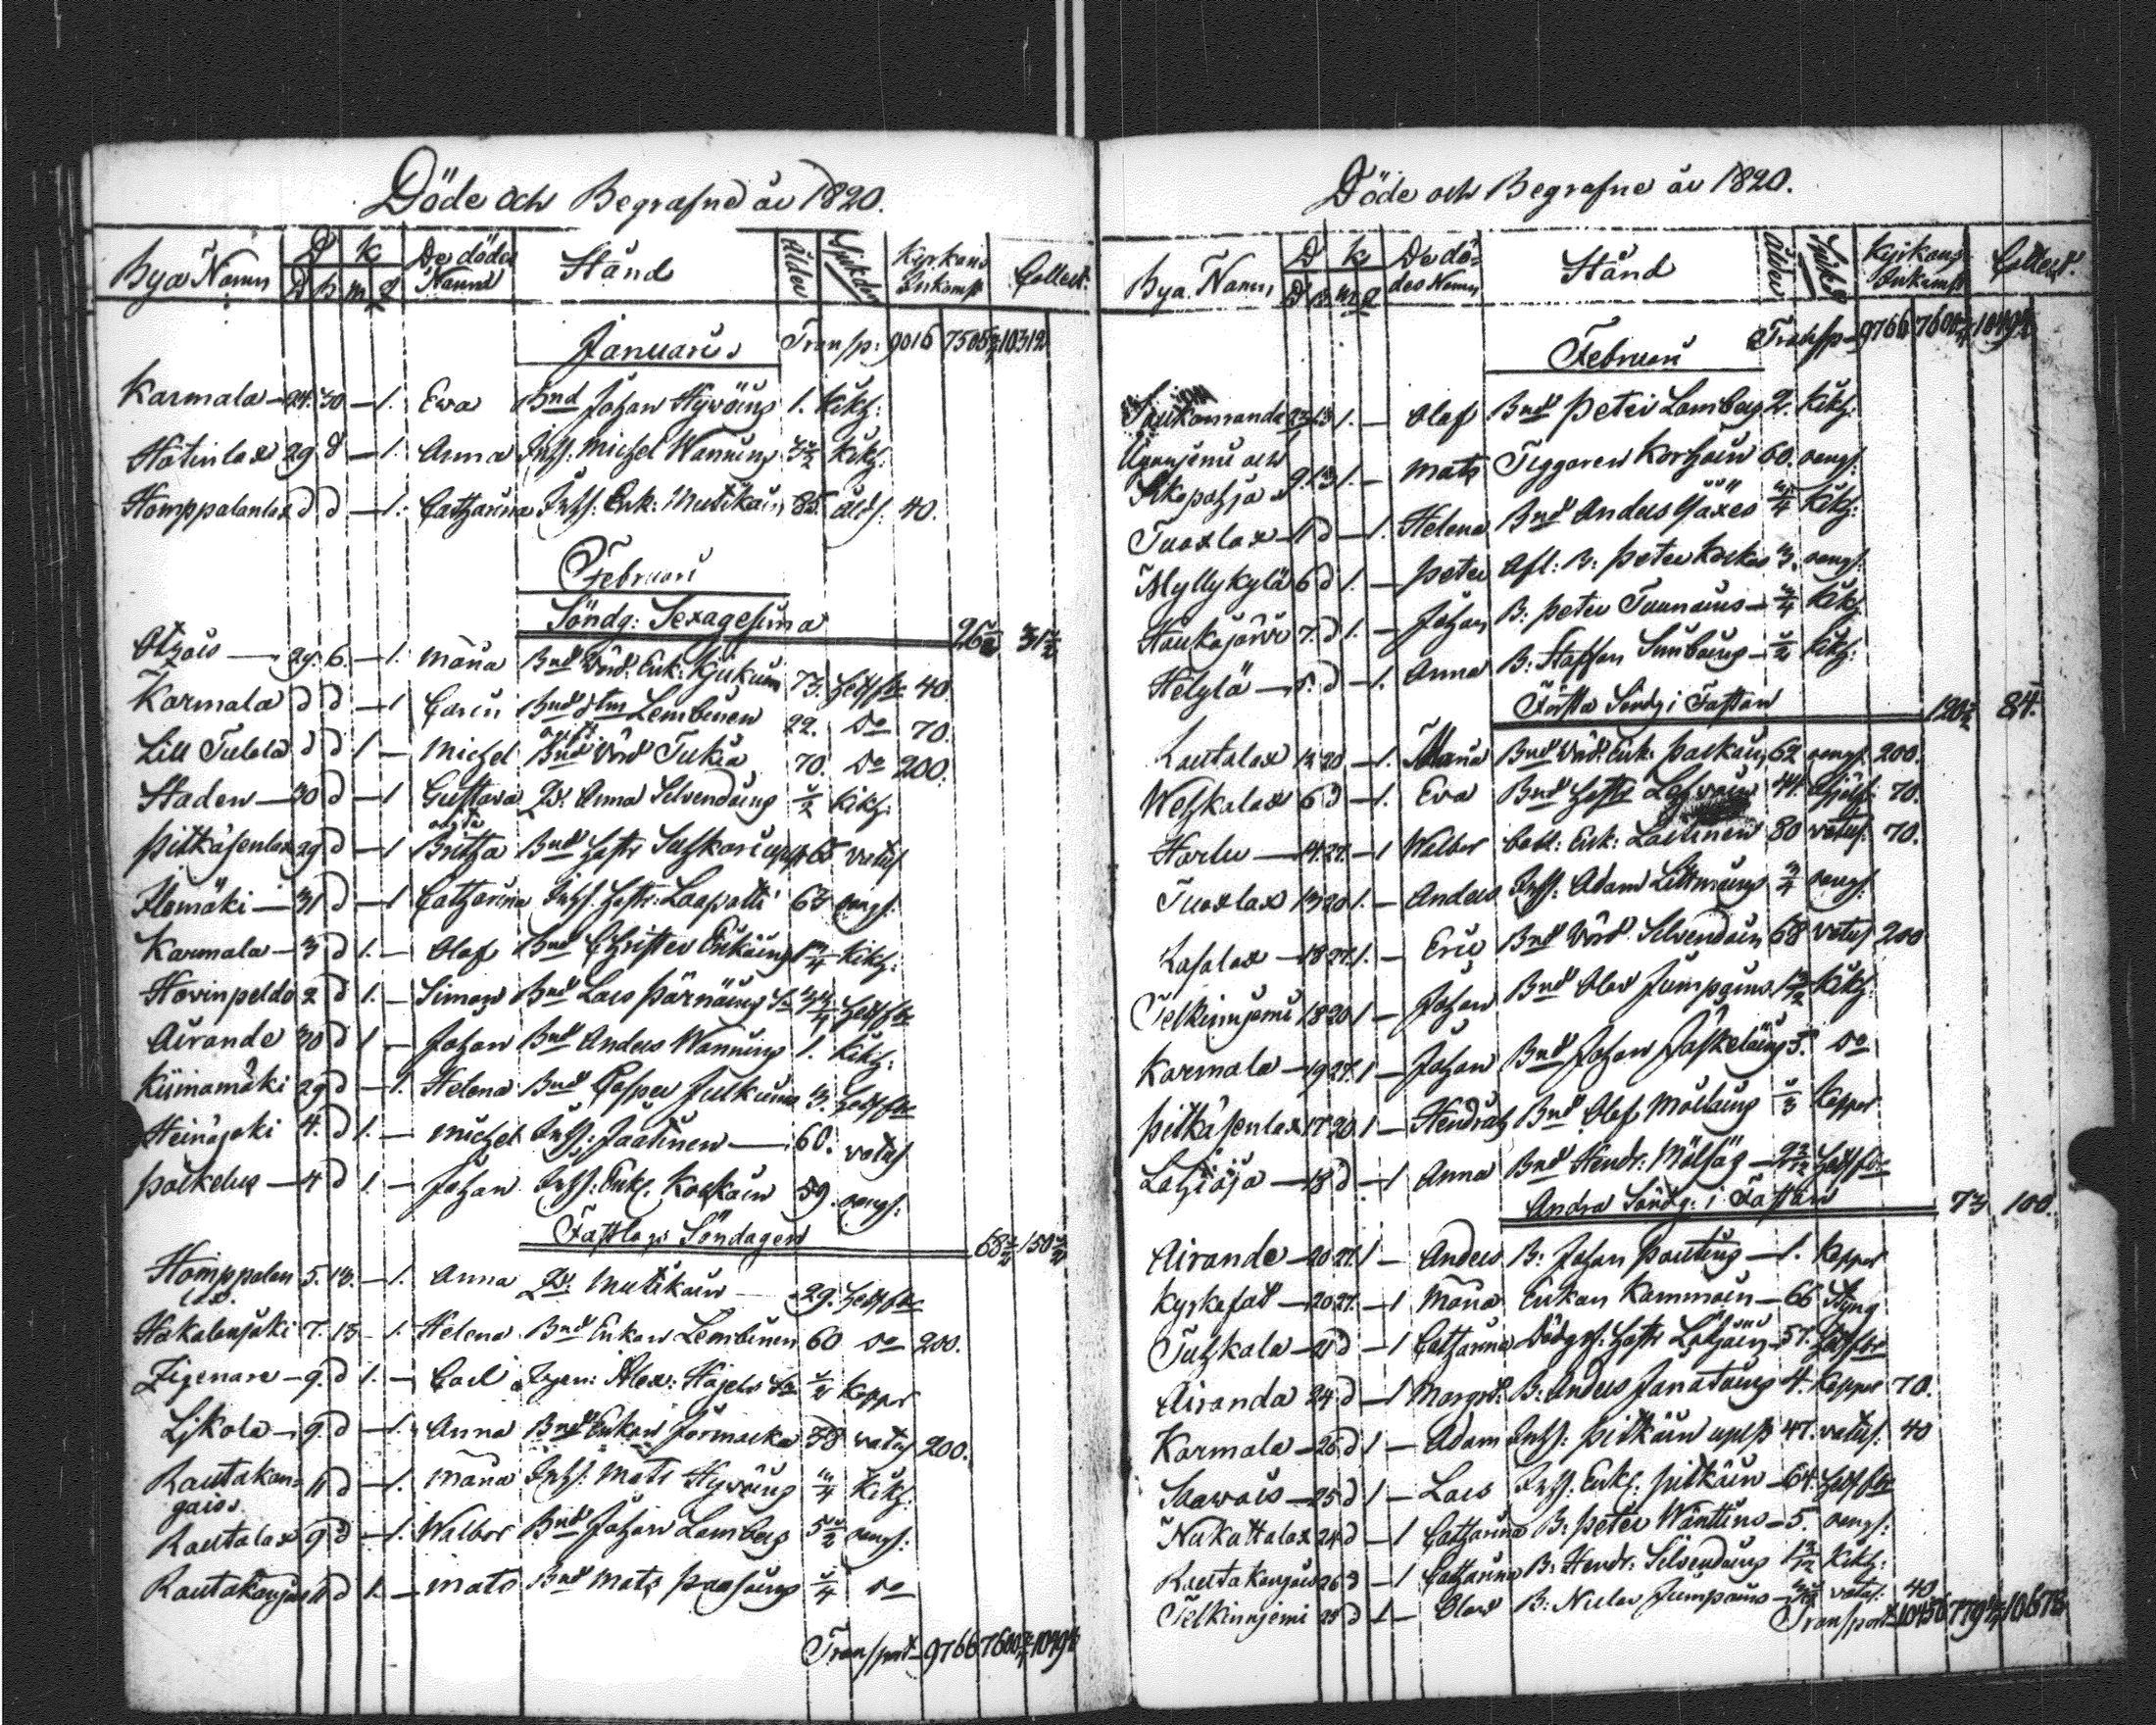 Döde och Begrafne år 1820.
Bya Namn D K De dödes Namn Stånd Ålder Sjukdom Kyrkans Inkomst Collect.
D B m q
Januari Transp: 9016 7505 10312
Karmala 24. 30 — 1. Ewa Bnd Johan Hyväins 1. Kikh:
Hotinlax 29 d — 1. Anna Inhs: Michel Wänninens 3 1/2 Kikh:
Homppalanlax d d — 1. Catharina Inhs: Enk: Mutikain 85. ålds: 40.
Februari
Söndg: Sexagesima 26 1/2 31 1/2
29. 6. — 1. Maria Bnd Värd. Enk: Kjukuin 73. hetsfbr 40
Karmala d d — 1 Carin Bnd Lembinen 22. Do 70.
Lill Tulola d d 1 — Michel Bnd Värd Tukia 70. Do 200.
Staden — 30 d — 1 Gustava Anna Silvendoins 1/2 Kikh:
Pitkäsenlax 29 d — 1 oägta Britha Bnd hustr 65 vatus
Ilomäki — 31 d — 1 Catharina Inhs. hustr: Laapotti 63 oengs:
Karmala — 3 d 1. — Olof Bnd Christer Eriksins 1 3/4 Kikh:
Hovinpeldo 2 d 1. — Simon Bnd Lars Pärnäins hetsfbr
Airando 30 d 1 — Johan Bnd Anders Wännins 1. Kikh:
Kiinamäki 29 d — 1. Helena Bnd Casper Julkuins 3. hetsfbr
Heinäjoki 4. d 1. — Michel Inhs: Jaatinen — 60. vatus
Pockelus — 4 d 1. — Johan Inhs: Enkl. Koskain 59. oengs:
Fastlags Söndagen 68 1/2 150 1/2
Homppalan lax. 5. 13. — 1. Anna Mutikain — 29. hetsfbr
Hakalanjoki 7. 13 — 1. Helena Bnd Enkan Lembinen 60 Do 200.
Zigenare — 9. d 1. — Carl Alex: Hagers 1/2 Koppr
Ljkola — 9. d — 1. Anna Bnd Enkan Jormacka 58 vatus 200.
Rautakan= gais. 11 d — 1. Maria Inhs: Mats Hyväins 3/4 Kikh:
Rautalax 9 d — 1. Walbor Bnd Johan Lamberg 5 1/2 oengs:
Rautakangais 11 d 1. — Mats Bnd Mats Paasoins 1/4 Do
Transport 9766 7600 10494
Döde och Begrafne år 1820.
Bya Namn D K De dö= des Namn Stånd Ålder Sjukd Kyrkans Inkomst Collect.
D B m q
Februari Transp 9766 7600 10494
13 1. — Olof Bnd Peter Lamberg 2. Kikh:
9. 13 1. — Mats Tiggaren Korhoin 60. oengs:
Tuoxlax — 11 d — 1. Helena Bnd Anders Yäxes 3/4 Kikh:
Myllykylä 6 d 1. — Peter Afl: B: Peter Kockos 3. oengs:
Haukajärvi 7. d 1. — Johan B: Peter Tuunains — 3/4 Kikh.
Helylä — 5. d — 1. Anna B: Staffan Simboins — 1/2 Kikh:
Första Söndg i Fastan 120 1/2 84.
Rautalax 13 20 — 1. Maria Bnd Värd. Enk: Paskain 62 oengs 200.
Wehkalax 6 d — 1. Eva Bnd hustr 44. 70.
Harlu — 14. 27. — 1 Walbor Enk: Laitinen 80 vatus: 70.
Tuoxlax 13 20 1. — Anders Inhs: Adam Littmains 3/4 oengs:
Kasalax — 18 27. 1. — Eric Bnd Värd Silvendoin 68 vatus 200
Telkinnjemi 18 20 1 — Johan Bnd Olof Jumpains. 1 1/2 Kikh:
Karmala — 19 27. 1 — Johan Bnd Johan Jäskeläins 5. Do
Pitkäsenlax 17 20 1 — Hendrich Bnd Olof Mölläins 1/3 Koppr
Lahioja — 18 d — 1 Anna Bnd Hendr: Mölsäs — hetsfbr
Andra Söndg: i Fastan 73 100.
Airando — 20 27. 1 — Anders B: Johan Pautins — 1. Koppr
Kyrkofat — 20 27. — 1 Maria Enkan Kammoin — 66 Styng
Tuhkala — 21 d — 1 Catharina hustr 57. hetsfbr
Airanda 24 d — 1 Margrt. B: Anders Janatuins 4. Koppr 70.
Karmala — 26 d 1 — Adam Inhs: Pitkäin 47. vatus: 40
Sawais — 25 d 1 — Lars Inhs: Enkl: Pitkäin — 64. hetsfbr
Nukuttalax 24 d — 1 Catharina B: Peter Wänttins — 5. oengs:
Rautakangais 26 d — 1 Catharina B: Hendr: Silvendoins Kikh:
Telkinnjemi 25 d 1 — Olof B: Nielas Jumpains — vatus: 40
Transport